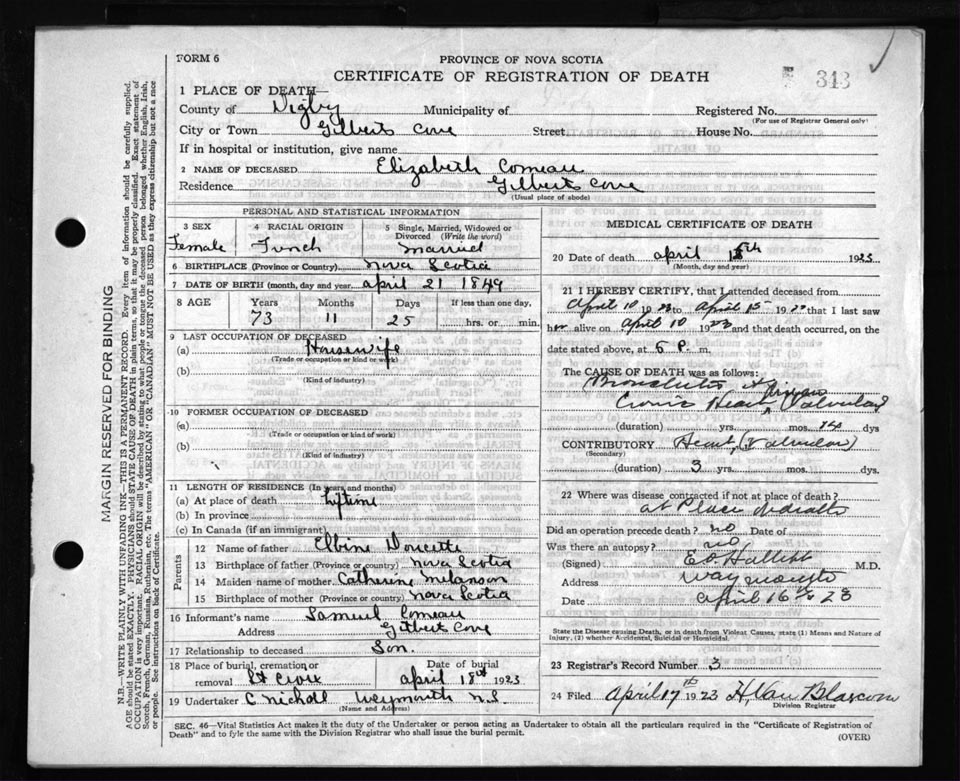 FORM 6
PROVINCE OF NOVA SCOTIA
CERTIFICATE OF REGISTRATION OF DEATH
343
1 PLACE OF DEATH—
County of Digby Municipality of Registered No.
(For use of Registrar General only)
City or Town Gilberts Cove Street House No.
If in hospital or institution, give name
2 NAME OF DECEASED Elizabeth Comeau
Residence Gilberts Cove
(Usual place of abode)
PERSONAL AND STATISTICAL INFORMATION
3 SEX 4 RACIAL ORIGIN 5 Single, Married, Widowed or Divorced (Write the word)
Female French married
6 BIRTHPLACE (Province or Country) Nova Scotia
7 DATE OF BIRTH (month, day and year) april 21 1849
8 AGE Years Months Days If less than one day,
73 11 25 hrs. or min.
9 LAST OCCUPATION OF DECEASED
(a) Housewife
(Trade or occupation or kind or work)
(b)
(Kind of industry)
10 FORMER OCCUPATION OF DECEASED
(a)
(Trade or occupation or kind of work)
(b)
(Kind of industry)
11 LENGTH OF RESIDENCE (In years and months)
(a) At place of death Liftime
(b) In province
(c) In Canada (if an immigrant)
Parents
12 Name of father Elbine Doucette
13 Birthplace of father (Province or country) Nova Scotia
14 Maiden name of mother Catherine Melanson
15 Birthplace of mother (Province or country) Nova Scotia
16 Informant's name Samuel Comeau
Address Gilbert Cove
17 Relationship to deceased Son
18 Place of burial, cremation or Date of burial
removal St Croix april 18th 1923
19 Undertaker C Nicholl Weymouth N.S.
(Name and Address)
MEDICAL CERTIFICATE OF DEATH
20 Date of death april 15th 1923
(Month, day and year)
21 I HEREBY CERTIFY, that I attended deceased from
April 10 1923 to April 15 1923 that I last saw
her alive on April 10 1923 and that death occurred, on the
date stated above, at 5 P. m.
The CAUSE OF DEATH was as follows:
Heart Valvular
(duration) yrs. mos. dys
CONTRIBUTORY Heart (Valvular)
(Secondary)
(duration) 3 yrs. mos. dys.
22 Where was disease contracted if not at place of death?
at Place
Did an operation precede death? no Date of
Was there an autopsy? no
(Signed) M.D.
Address Weymouth
Date April 16 23
State the Disease causing Death, or in death from Violent Causes, state (1) Means and Nature of Injury, (2) whether Accidental, Suicidal or Homicidal.
23 Registrar's Record Number 3
24 Filed April 17th 1923 H. Van Blarcom
Division Registrar
SEC. 46—Vital Statistics Act makes it the duty of the Undertaker or person acting as Undertaker to obtain all the particulars required in the "Certificate of Registration of
Death" and to fyle the same with the Division Registrar who shall issue the burial permit.
(OVER)
MARGIN RESERVED FOR BINDING
N.B.—WRITE PLAINLY WITH UNFADING INK—THIS IS A PERMANENT RECORD. Every item of information should be carefully supplied.
AGE should be stated EXACTLY. PHYSICIANS should STATE CAUSE OF DEATH in plain terms, so that it may be properly classified. Exact statement of
OCCUPATION is very important. RACIAL ORIGIN will be described by stating to what people or tongue the deceased person belonged, whether English, Irish,
Scotch, French, German, Russian, Ruthenian, etc. The terms "AMERICAN" OR "CANADIAN" MUST NOT BE USED as they express citizenship but not a race
or people. See instructions on back of Certificate.